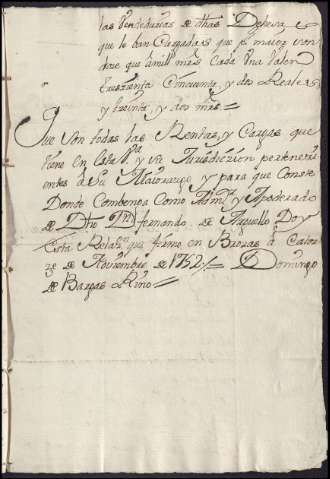 las Pensedurias de dhas Depesa, es
que le ban Cargadas que pr. maior con
que a mill mrs Cada Una Valen
treszientta Cinquenta, y dos Reales
y treinta, y dos mrs =
Que son todas las Renttas, y Cargas que
tiene en esta Va. y su Jurisdizion pertenezi
entes a Su Maiorazgo y para que Conste
Donde Combenga Como Admr. y Apoderado
de Dho Dn Fernando de Aguello Doy
esta Relazn. que firmo en Brozas à Cator
ze de Noviembre de 1752 // = Domingo
de Bargas Rino =